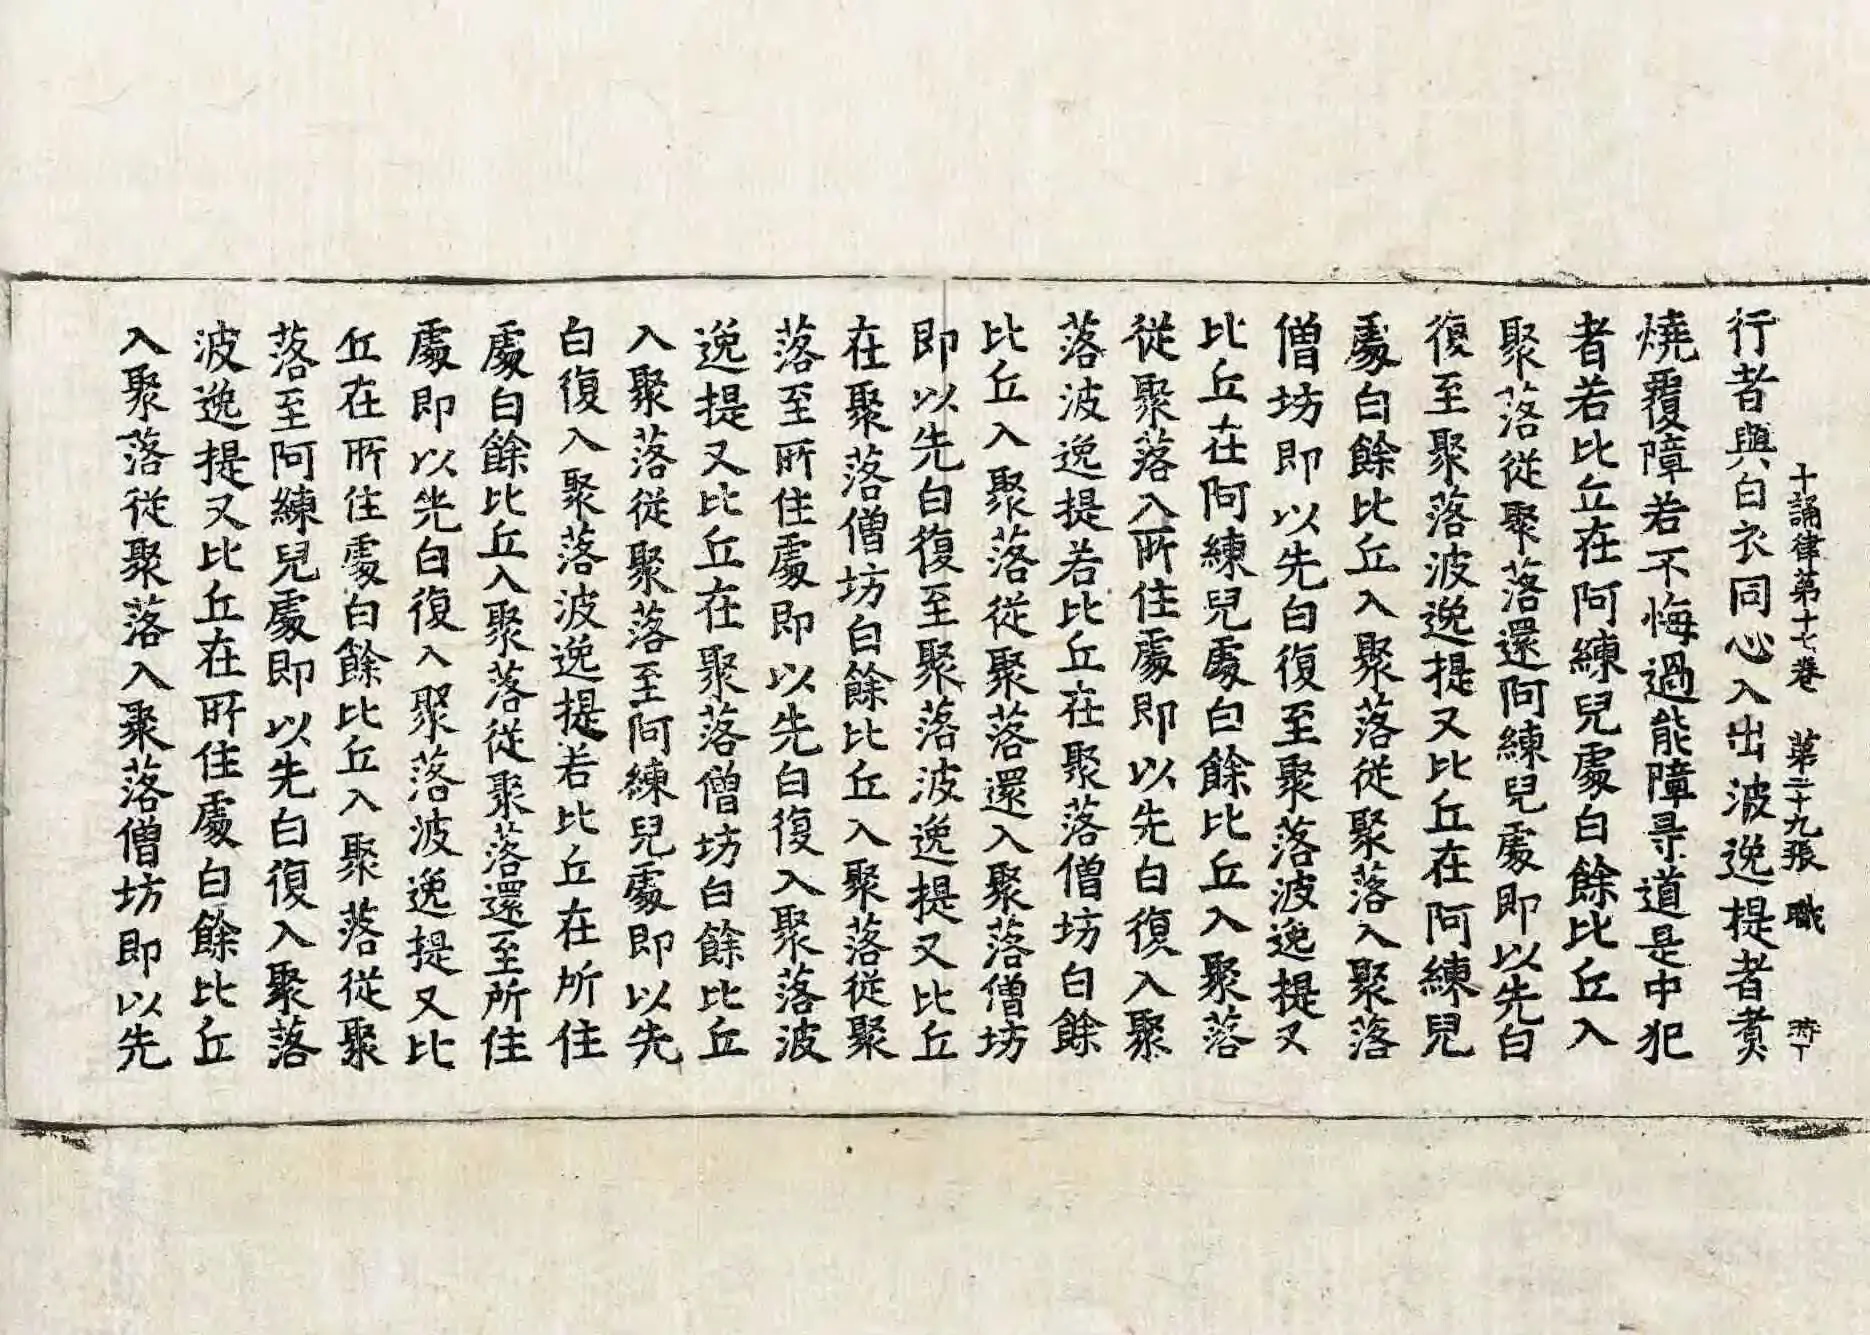 十誦律第十七卷　第二十九張　職
行者與白衣同心入出波逸提者煑
燒覆障若不悔過能障㝵道是中犯
者若比丘在阿練兒處白餘比丘入
聚落從聚落還阿練兒處即以先白
復至聚落波逸提又比丘在阿練兒
處白餘比丘入聚落從聚落入聚落
僧坊即以先白復至聚落波逸提又
比丘在阿練兒處白餘比丘入聚落
從聚落入所住處即以先白復入聚
落波逸提若比丘在聚落僧坊白餘
比丘入聚落從聚落還入聚落僧坊
即以先白復至聚落波逸提又比丘
在聚落僧坊白餘比丘入聚落從聚
落至所住處即以先白復入聚落波
逸提又比丘在聚落僧坊白餘比丘
入聚落從聚落至阿練兒處即以先
白復入聚落波逸提若比丘在所住
處白餘比丘入聚落從聚落還至所住
處即以先白復入聚落波逸提又比
丘在所住處白餘比丘入聚落從聚
落至阿練兒處即以先白復入聚落
波逸提又比丘在所住處白餘比丘
入聚落從聚落入聚落僧坊即以先